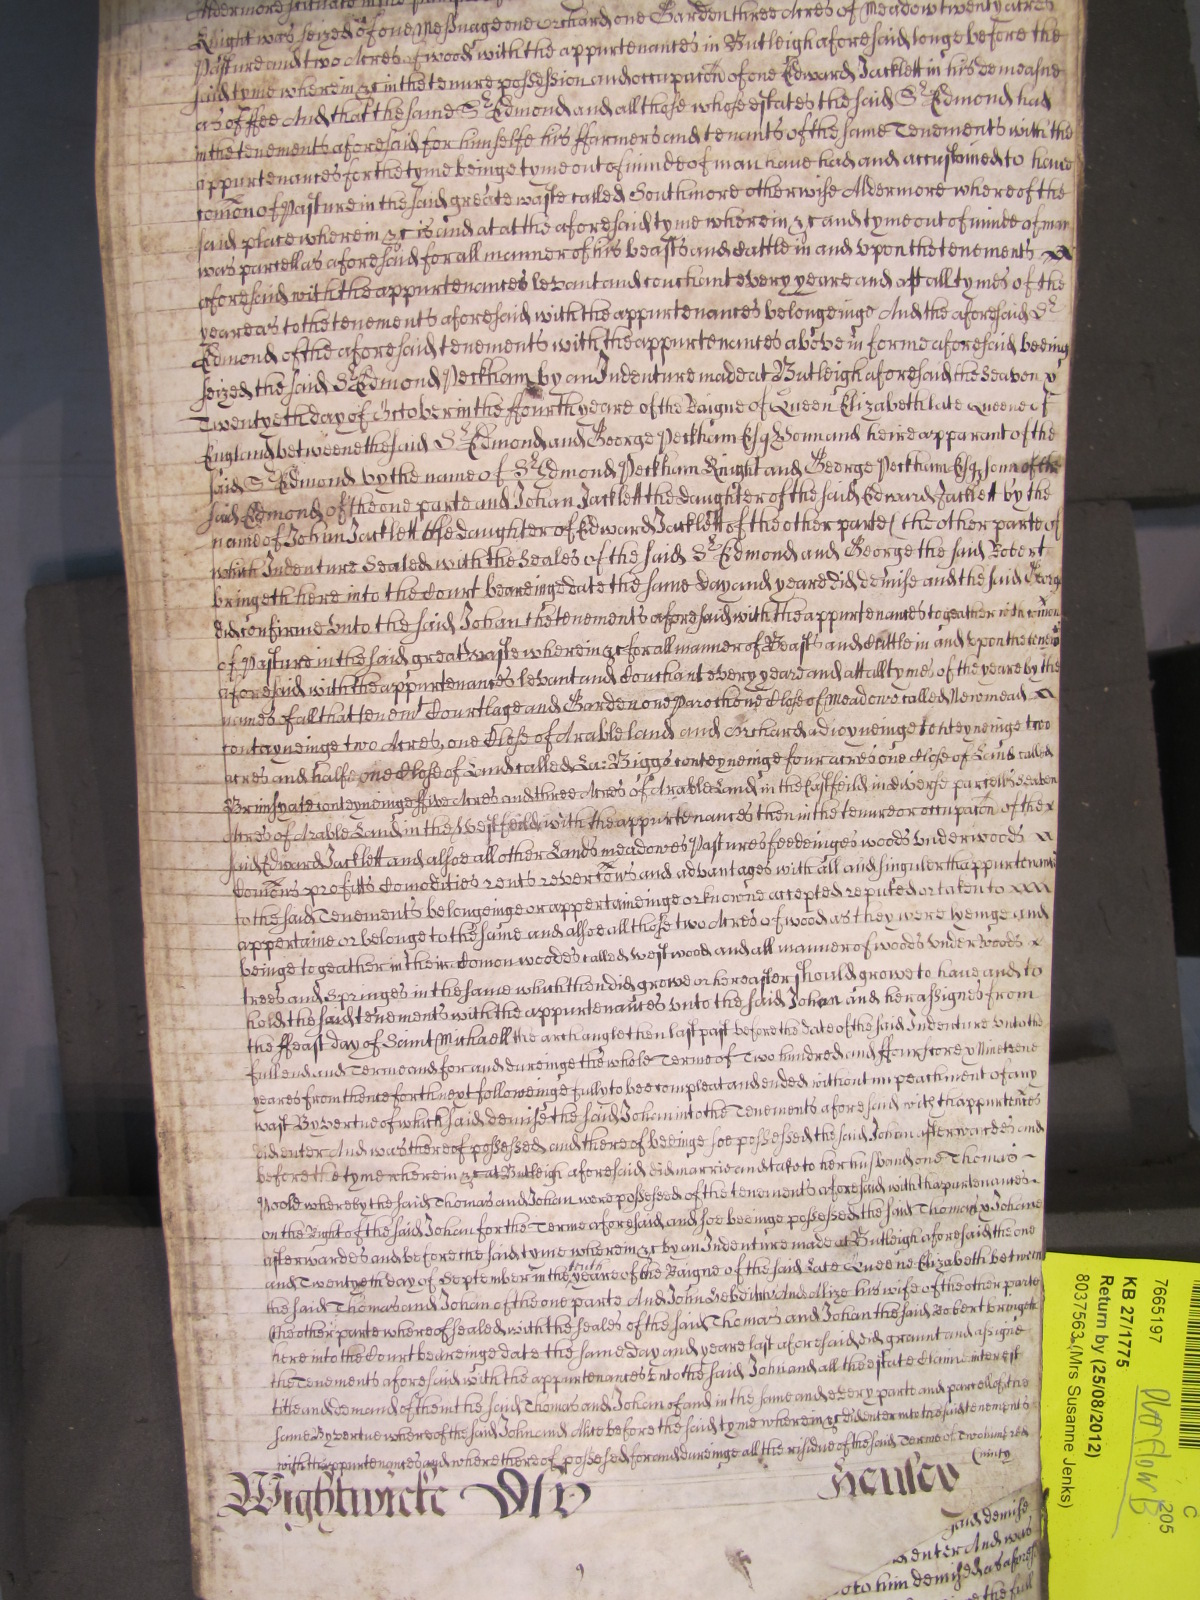 Aldermore scituate
Knight was seized of one Messuage one Orchard one Garden three Acres of Meadow twenty acres
Pasture and two Acres of wood with the appurtenances in Butleigh aforesaid longe before the
said tyme wherein &c in the tenure possession and occupac̃on of one Edward Jacklett in his demeasne
as of ffee And that the same Sr Edmond and all those whose estates the said Sr Edmond had
in the tenements aforesaid for himselfe his ffarmers and tenants of the same Tenements with the
appurtenances for the tyme beinge tyme out of minde of man have had and accustomed to have
com̃on of Pasture in the said greate waste called Southmore otherwise Aldermore whereof the
said place wherein &c is and at the aforesaid tyme wherein &c and tyme out of minde of man
was parcell as aforesaid for all manner of his beasts and Cattle in and vpon the tenements
aforesaid with the appurtenances levant and couchant every yeare and att all tymes of the
yeare as to the tenements aforesaid with the appurtenances belongeinge And the aforesaid Sr
Edmond of the aforesaid tenements with the appurtenances above in forme aforesaid beeing
seized the said Sr Edmond Peckham by an Indenture made at Butleigh aforesaid the seaven
Twentyeth day of October in the ffourth yeare of the Raigne of Queen Elizabeth late Queene of
England betweene the said Sr Edmond and George Peckham Esq Sonn and heire apparant of the
said Sr Edmond by the name of Sr Edmond Peckham Knight and George Peckham Esq sonn of the
said Edmond of the one parte and Johan Jacklett the daughter of the said Edward Jacklett by the
name of Johan Jacklett the daughter of Edward Jacklett of the other parte ( the other parte of
which Indenture Sealed with the Seales of the said Sr Edmond and George the said Robert
bringeth here into the Court beareing date the same day and yeare did demise and the said George
did confirme vnto the said Johan the tenements aforesaid with the appurtenances togeather with com̃on
of Pasture in the said great waste wherein &c for all manner of Beasts and Cattle in and vpon the tenem̃ts
aforesaid with the appurtenances levant and Couchant every yeare and att all tymes of the yeare by the
names of all that tenemt Courtlage and Garden one Close of Meadowe called Newmead
contayneinge two Acres, one Close of Arable land and Orchard adioyneinge conteyneinge two
acres and halfe one Close of Land called Biggs conteyneinge four acres one Close of Land called
Brimsyate conteyneinge ffive Acres and three Acres of Arable Land in the Eastfeild in diverse parcells seaven
Acres of Arable Land in the Westfeild with the appurtenances then in the tenure or occupac̃on of the
said Edward Jacklett and alsoe all other Lands meadowes Pastures feedeinges woods vnderwoods
Com̃ons profitts Comodities rents reverc̃ons and advantages with all and singuler thappurtennc̃s
to the said Tenements belongeinge or apperteineinge or knowne accepted reputed or taken to
appertaine or belonge to the same and alsoe all those two Acres of wood as they were lyeinge and
beinge togeather in their Comon woodes called westwood and all manner of woods vnder woods
trees and Springes in the same which then did growe or hereafter should growe to have and to
hold the said tenements with the appurtenances vnto the said Johan and her assignes from
the ffeast day of Saint Michaell the archangle then last past before the date of the said Indenture vnto the
full end and Terme and for and dureinge the whole Terme of Two hundred and ffourscore Nineteene
yeares from thence forth next followeinge fully to bee compleat and ended without impeachment of any
wast By vertue of which said demise the said Johan into the Tenements aforesaid with thappurtences
did enter And was thereof possessed and thereof beeinge soe possessed the said Johan afterwardes and
before the tyme wherein &c at Butleigh aforesaid did marrie and take to her husband one Thomas
Poole whereby the said Thomas and Johan were possessed of the tenements aforesaid with thapurtenances
on the Right of the said Johan for the Terme aforesaid and soe beeinge possessed the said Thomas & Johane
afterwardes and before the said tyme wherein &c by an Indenture made at Butleigh aforesaid the one
and Twentyeth day of September in the tenth yeare of the Raigne of the said Late Queene Elizabeth between
the said Thomas and Johan of the one parte And John and Alize his wife of the other parte
(the other parte whereof sealed with the seales of the said Thomas and Johan the said Robert bringeth
here into the Court beareinge date the same day and yeare last aforesaid did graunt and assigne
the Tenements aforesaid with the appurtenances vnto the said John and all the estate Claime interest
title and demand of them the said Thomas and Johan of and in the same and every parte and parcell of the
same By vertue whereof the said John and Alice before the said tyme wherein &c did enter into the said tenements
with thappurtenances and where thereof possessed for and dureinge all the residue of the said Terme of Two hundred
Wightwicke
said demise
enter And was
to him demised as afores
the full
7665197
KB 27/1775
Return by (25/08/2012)
8037563 (Mrs Susanne Jenks)
C
205